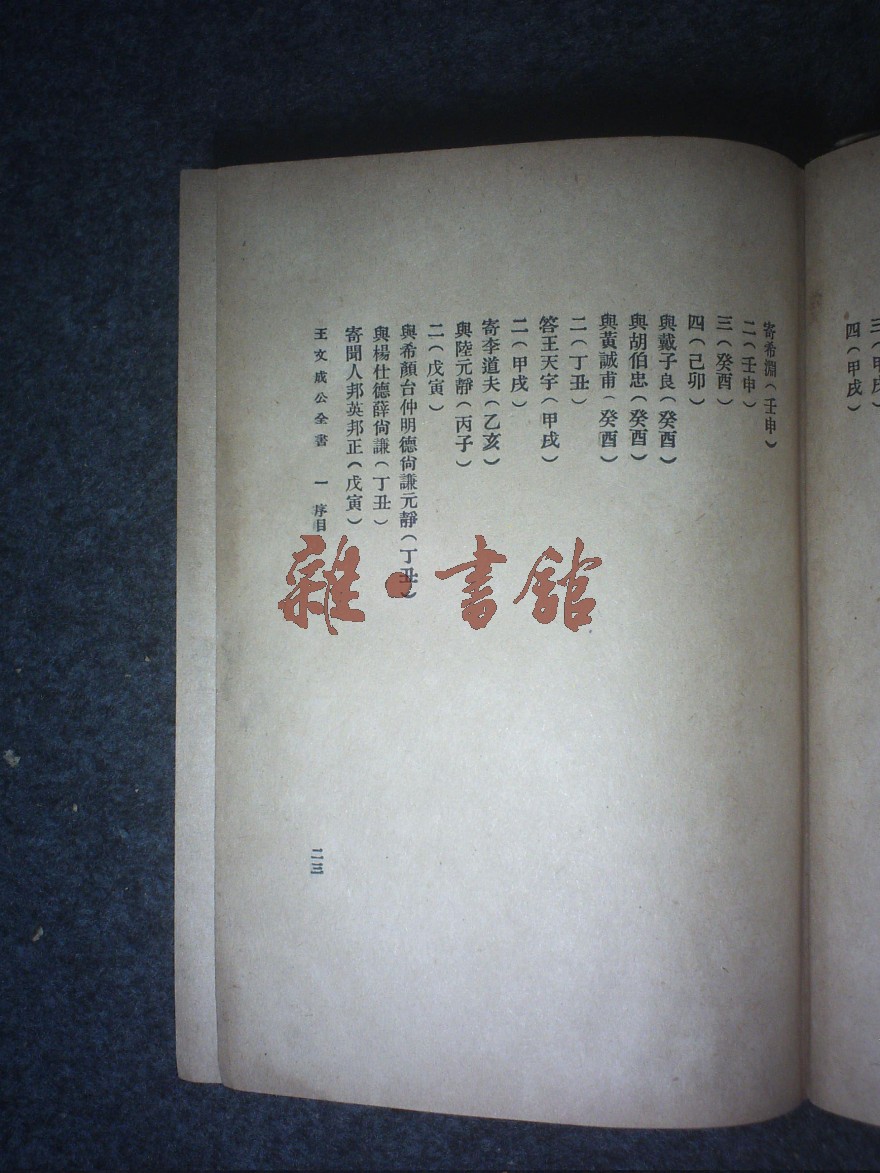 三（甲戌）
四（甲戌）
寄希淵（壬申）
二（壬申）
三（癸酉）
四（己卯）
與戴子良（癸酉）
與胡伯忠（癸酉）
與黃誠甫（癸酉）
二（丁丑）
答王天宇（甲戌）
二（甲戌）
寄李道夫（乙亥）
與陸元靜（丙子）
二（戊寅）
與希顏台仲明德尙謙元靜（丁丑）
與楊仕德薛尙謙（丁丑）
寄聞人邦英邦正（戊寅）
王文成公全書 一 序目
二三
雜·書館